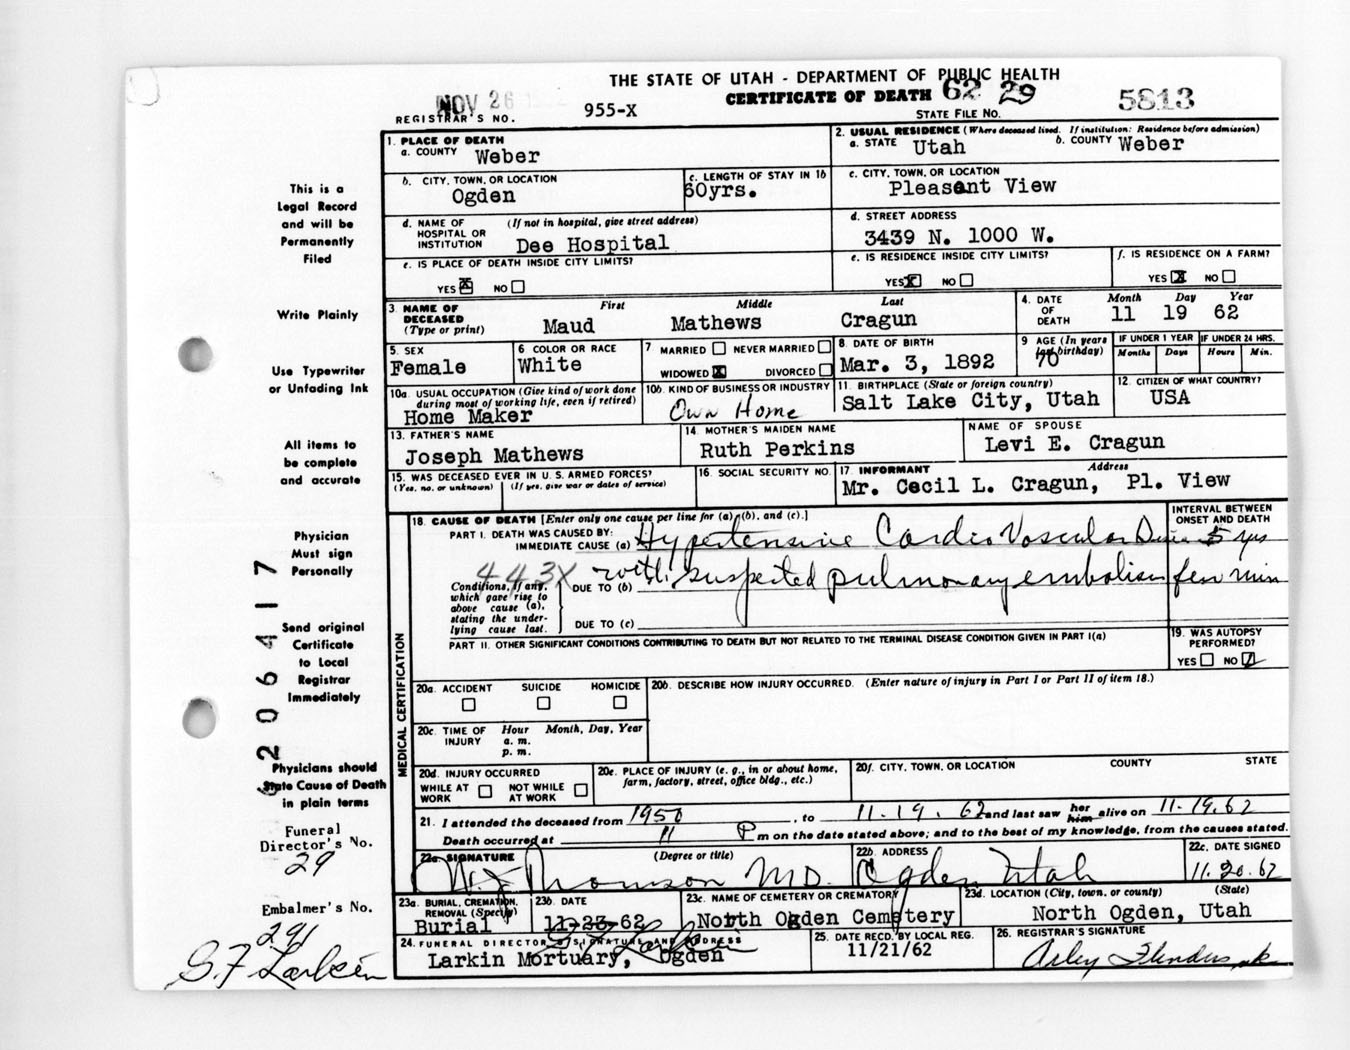 THE STATE OF UTAH - DEPARTMENT OF PUBLIC HEALTH
CERTIFICATE OF DEATH 62 29 5813
NOV 26
REGISTRAR'S NO. 955-X STATE FILE No.
1. PLACE OF DEATH
a. COUNTY Weber
2. USUAL RESIDENCE (Where deceased lived. If institution: Residence before admission)
a. STATE Utah b. COUNTY Weber
b. CITY, TOWN, OR LOCATION Ogden
c. LENGTH OF STAY IN 1b 60yrs.
c. CITY, TOWN, OR LOCATION
Pleasant View
d. NAME OF HOSPITAL OR INSTITUTION (If not in hospital, give street address) Dee Hospital
d. STREET ADDRESS
3439 N. 1000 W.
e. IS PLACE OF DEATH INSIDE CITY LIMITS?
YES X NO
e. IS RESIDENCE INSIDE CITY LIMITS?
YES X NO
f. IS RESIDENCE ON A FARM?
YES X NO
3. NAME OF DECEASED (Type or print) First Middle Last
Maud Mathews Cragun
4. DATE OF DEATH Month Day Year
11 19 62
5. SEX Female
6 COLOR OR RACE White
7 MARRIED NEVER MARRIED
WIDOWED X DIVORCED
8. DATE OF BIRTH
Mar. 3, 1892
9 AGE (In years last birthday) 70
IF UNDER 1 YEAR Months Days
IF UNDER 24 HRS. Hours Min.
10a. USUAL OCCUPATION (Give kind of work done during most of working life, even if retired)
Home Maker
10b. KIND OF BUSINESS OR INDUSTRY
Own Home
11. BIRTHPLACE (State or foreign country)
Salt Lake City, Utah
12. CITIZEN OF WHAT COUNTRY?
USA
13. FATHER'S NAME
Joseph Mathews
14. MOTHER'S MAIDEN NAME
Ruth Perkins
NAME OF SPOUSE
Levi E. Cragun
15. WAS DECEASED EVER IN U. S. ARMED FORCES?
(Yes, no, or unknown) (If yes, give war or dates of service)
16. SOCIAL SECURITY NO.
17. INFORMANT Address
Mr. Cecil L. Cragun, Pl. View
MEDICAL CERTIFICATION
18. CAUSE OF DEATH [Enter only one cause per line for (a), (b), and (c).]
INTERVAL BETWEEN ONSET AND DEATH
PART I. DEATH WAS CAUSED BY:
IMMEDIATE CAUSE (a) Hypertensive Cardio Vascular Disease 5 yrs
443X
Conditions, if any, which gave rise to above cause (a), stating the underlying cause last.
DUE TO (b) with suspected pulmonary embolism few min
DUE TO (c)
PART II. OTHER SIGNIFICANT CONDITIONS CONTRIBUTING TO DEATH BUT NOT RELATED TO THE TERMINAL DISEASE CONDITION GIVEN IN PART I(a)
19. WAS AUTOPSY PERFORMED?
YES NO
20a. ACCIDENT SUICIDE HOMICIDE
20b. DESCRIBE HOW INJURY OCCURRED. (Enter nature of injury in Part I or Part II of item 18.)
20c. TIME OF INJURY Hour Month, Day, Year
a. m.
p. m.
20d. INJURY OCCURRED
WHILE AT WORK NOT WHILE AT WORK
20e. PLACE OF INJURY (e. g., in or about home, farm, factory, street, office bldg., etc.)
20f. CITY, TOWN, OR LOCATION COUNTY STATE
21. I attended the deceased from 1950, to 11. 19. 62 and last saw her him alive on 11-19.62
Death occurred at 11 P m on the date stated above; and to the best of my knowledge, from the causes stated.
22a. SIGNATURE (Degree or title)
Thomson M.D.
22b. ADDRESS
Ogden Utah
22c. DATE SIGNED
11.20.62
23a. BURIAL, CREMATION, REMOVAL (Specify)
Burial
23b. DATE
11-23-62
23c. NAME OF CEMETERY OR CREMATORY
North Ogden Cemetery
23d. LOCATION (City, town, or county) (State)
North Ogden, Utah
24. FUNERAL DIRECTOR'S SIGNATURE AND ADDRESS
Larkin
Larkin Mortuary, Ogden
25. DATE RECD. BY LOCAL REG.
11/21/62
26. REGISTRAR'S SIGNATURE
This is a
Legal Record
and will be
Permanently
Filed
Write Plainly
Use Typewriter
or Unfading Ink
All items to
be complete
and accurate
Physician
Must sign
Personally
Send original
Certificate
to Local
Registrar
Immediately
Physicians should
State Cause of Death
in plain terms
Funeral
Director's No.
29
Embalmer's No.
291
G. F Larkin